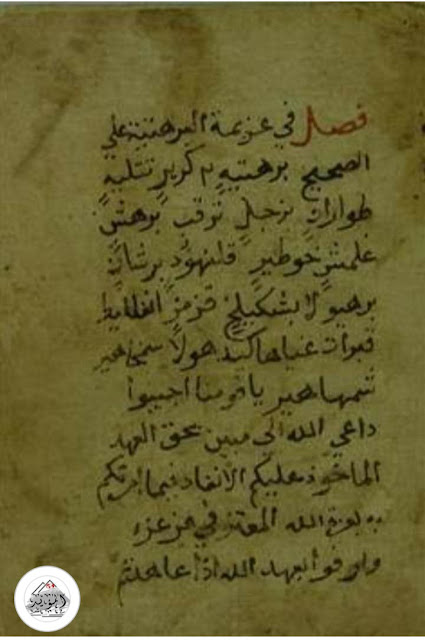 فصل في عزيمة البرهتية علي
الصحيح برهتيهٍ ٢ كريرٍ تتليهٍ
طوارانٍ مزجلٍ ترقبٍ برهشٍ
غلمشٍ خوطيرٍ قلنهودٍ برشانٍ
برهيولا بشكيلخٍ قزمزٍ انغلليط
قبرات غياها كيد هولا سمخاهير
شمهاهير يا قومنا اجيبوا
داعي الله الي مبين بحق العهد
الماخوذ عليكم الا نفاد فيما امرتكم
به بعزة الله المعتز في عز عزه
واوفوا بعهد الله اذا عاهدتم